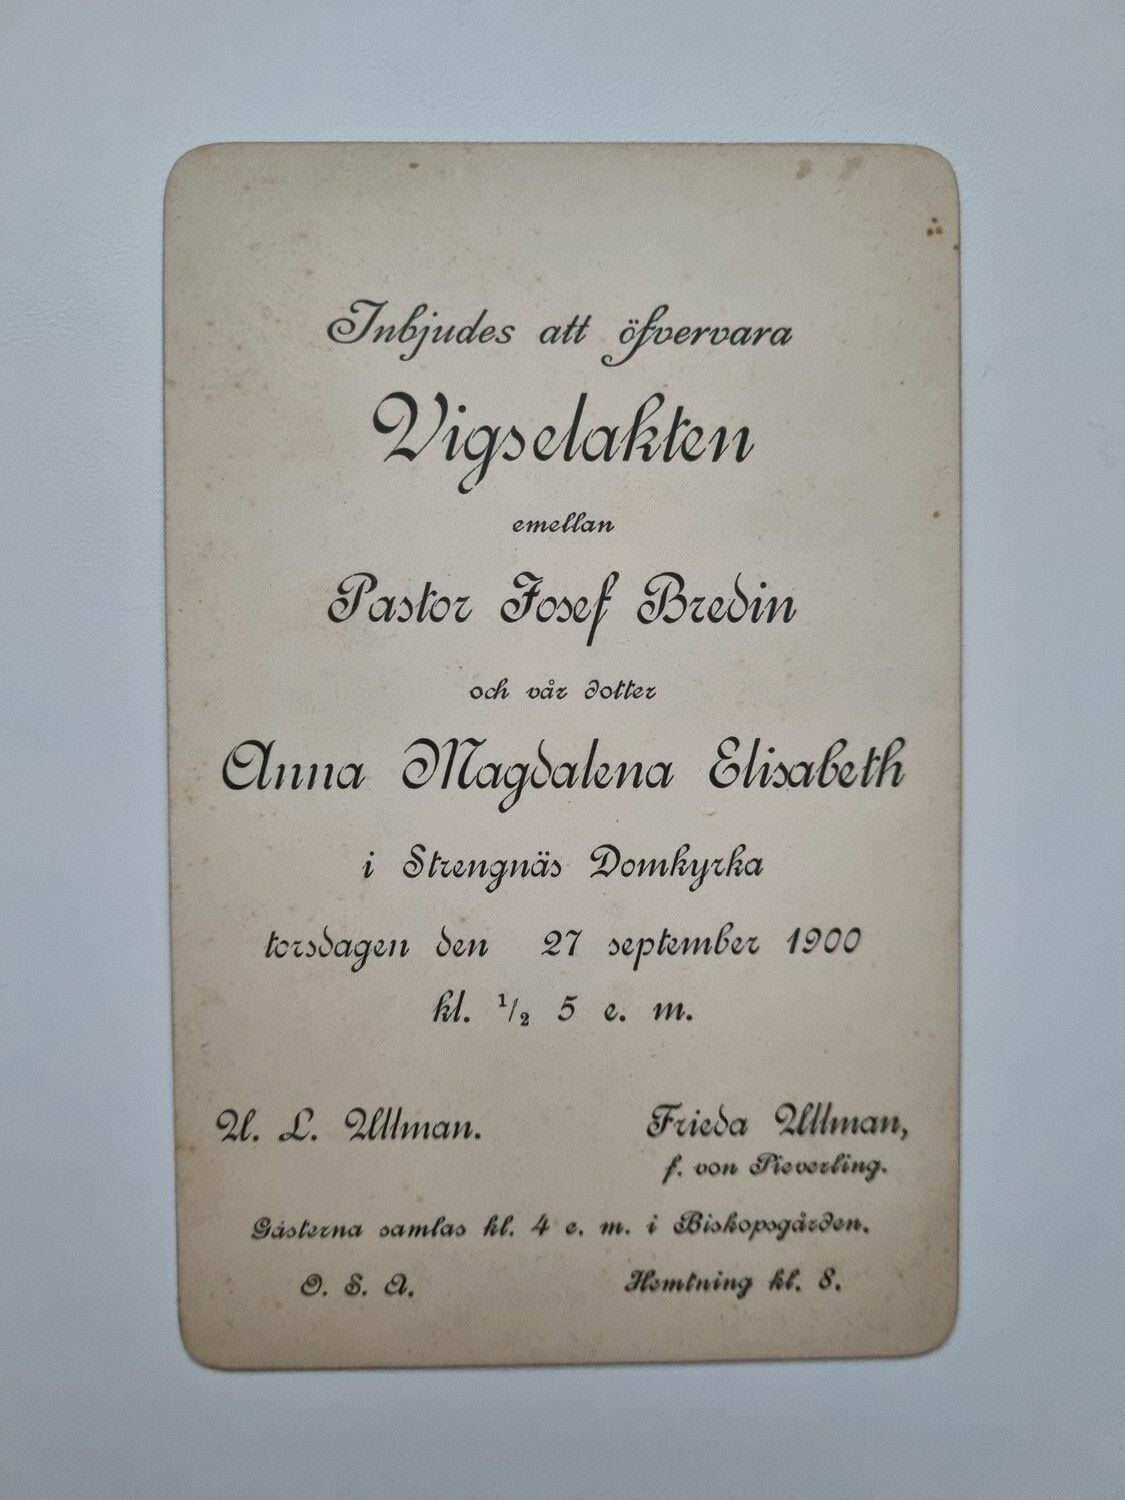 Inbjudes att öfvervara
Vigselakten
emellan
Pastor Josef Bredin
och vår dotter
Anna Magdalena Elisabeth
i Strengnäs Domkyrka
torsdagen den 27 september 1900
kl. ½ 5 e. m.
U. L. Ullman.
Frieda Ullman,
f. von Pieverling.
Gästerna samlas kl. 4 e. m. i Biskopsgården.
O. S. A.
Hemtning kl. 8.